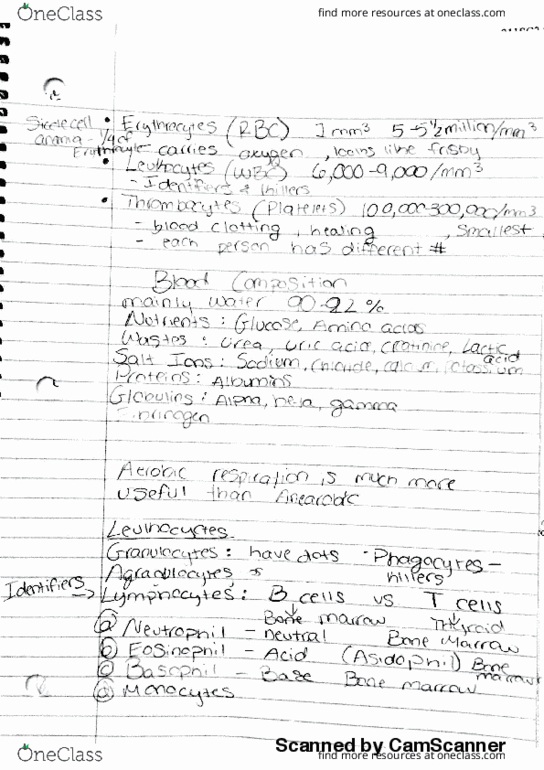 OneClass
find more resources at oneclass.com
• Erythrocytes (RBC) 1mm³ 5-5½ million/mm³
carries oxygen, looks like frisby
• Leukocytes (WBC) 6,000-9,000/mm³
- Identifiers & killers
• Thrombocytes (Platelets) 100,000-300,000/mm³
- blood clotting, healing, smallest
- each person has different #
Blood Composition
mainly water 90-92%
Nutrients: Glucose, Amino acids
Wastes: Urea, uric acid, Lactic acid
Salt Ions: Sodium, chloride
Proteins: Albumins
Globulins: Alpha, beta, gamma
Aerobic respiration is much more
useful than
Granulocytes: have dots · Phagocytes -
killers
Agranulocytes
Identifiers -> Lymphocytes: B cells vs T cells
Bone marrow
a Neutrophil - neutral Bone Marrow
b Eosinophil - Acid Bone marrow
c Basophil - Base Bone marrow
Monocytes
Scanned by CamScanner
OneClass
find more resources at oneclass.com